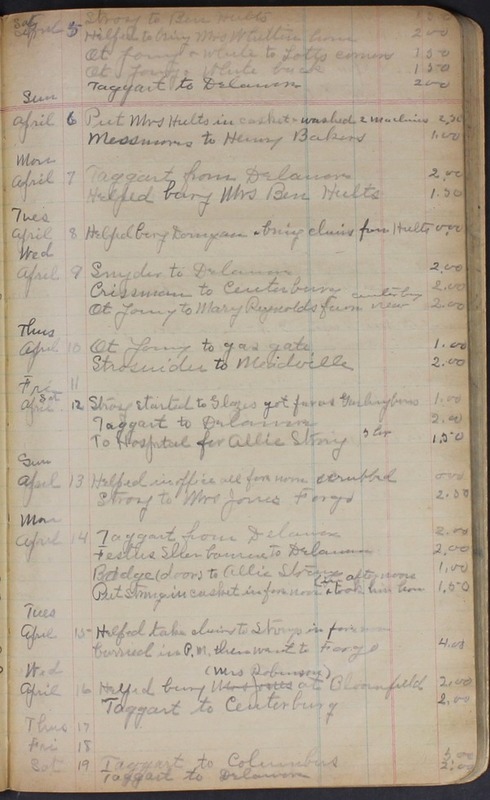 Sat
April 5 Strong to Ben Hults
Helped to bring Mrs Whittier home 2.00
Ot Jonny & White to Lotts corners 1.50
Ot Jonny White back 1.50
Taggart to Delaware 2.00
Sun
April 6 Put Mrs Hults in casket & washed 2 machines 2.50
Messmore to Henry Bakers 1.00
Mon
April 7 Taggart from Delaware 2.00
Helped bury Mrs Ben Hults 1.50
Tues
April 8 Helped bury bring chairs from Hults 0.00
Wed
April 9 Snyder to Delaware 2.00
Crissman to Centerburg 2.00
Ot Jonny to Mary Reynolds from Centerburg 2.00
Thus
April 10 Ot Jonny to gas gate 1.00
Strosnider to Meidville 2.00
Fri 11
Sat
April 12 Strong started to got far as 1.00
Taggart to Delaware 2.00
To Hospital for Allie Strong 1.50
Sun
April 13 Helped in office all forenoon scrubbed 000
Strong to Mrs Jones Fargo 2.50
Mon
April 14 Taggart from Delaware 2.00
to Delaware 2.00
Badge (door) to Allie Strongs 1.00
in afternoon
Put Strong in casket in forenoon & took him home 1.50
Tues
April 15 Helped take chairs to Strongs in forenoon
burried in P.M. then went to Fargo 4.00
Wed
(Mrs Robinson)
April 16 Helped bury at Bloomfield 2.00
Taggart to Centerburg 2.00
Thus 17
Fri 18
Sat 19 Taggart to Columbus 5.00
Taggart to Delaware 2.00